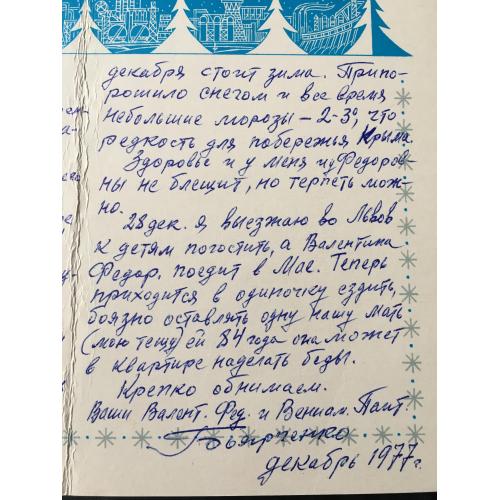 декабря стоит зима. Припо-
рошило снегом и все время
небольшие морозы – 2-3°, что
редкость для побережья Крыма.
Здоровье и у меня и у Федоров-
ны не блещит, но терпеть мож-
но.
28 дек. я выезжаю во Львов
к детям погостить, а Валентина
Федор. поедит в Мае. Теперь
приходится в одиночку ездить,
боязно оставлять одну нашу мать
(мою тещу) ей 84 года она может
в квартире наделать беды.
Крепко обнимаем.
Ваши Валент. Фед. и Вениам.
декабрь 1977 г.